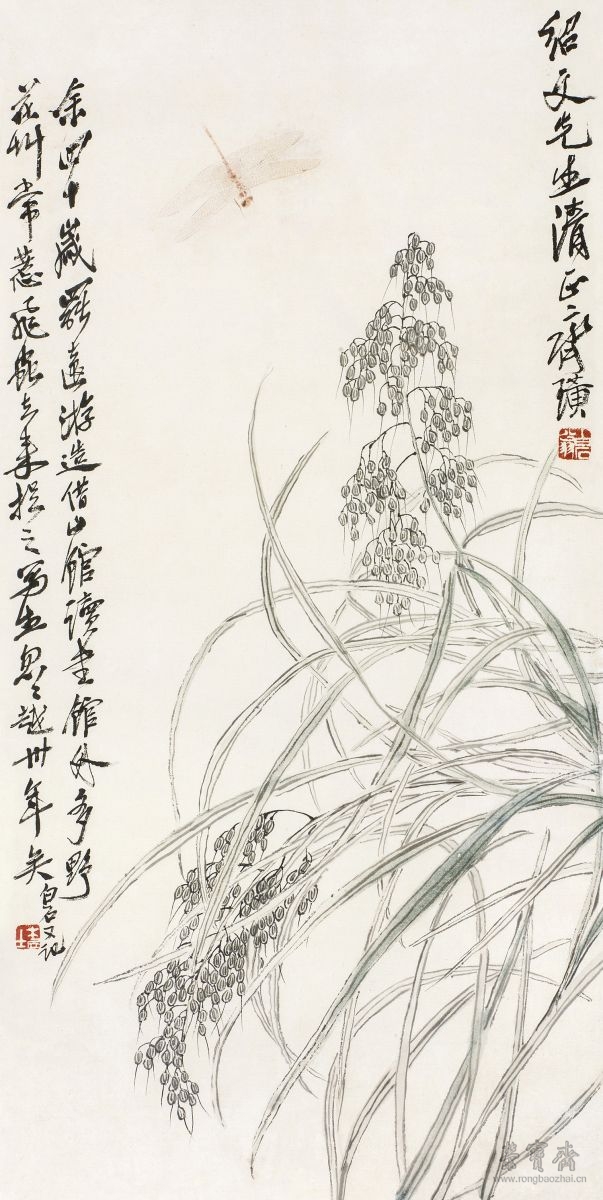 绍文先生清正 齐璜
余四十歲罷遠游造借山館讀書館外多野
花草常惹飛蟲去来捉之寫生忽ミ越卅年矣白石又記
榮寶齋
www.rongbaozhai.cn